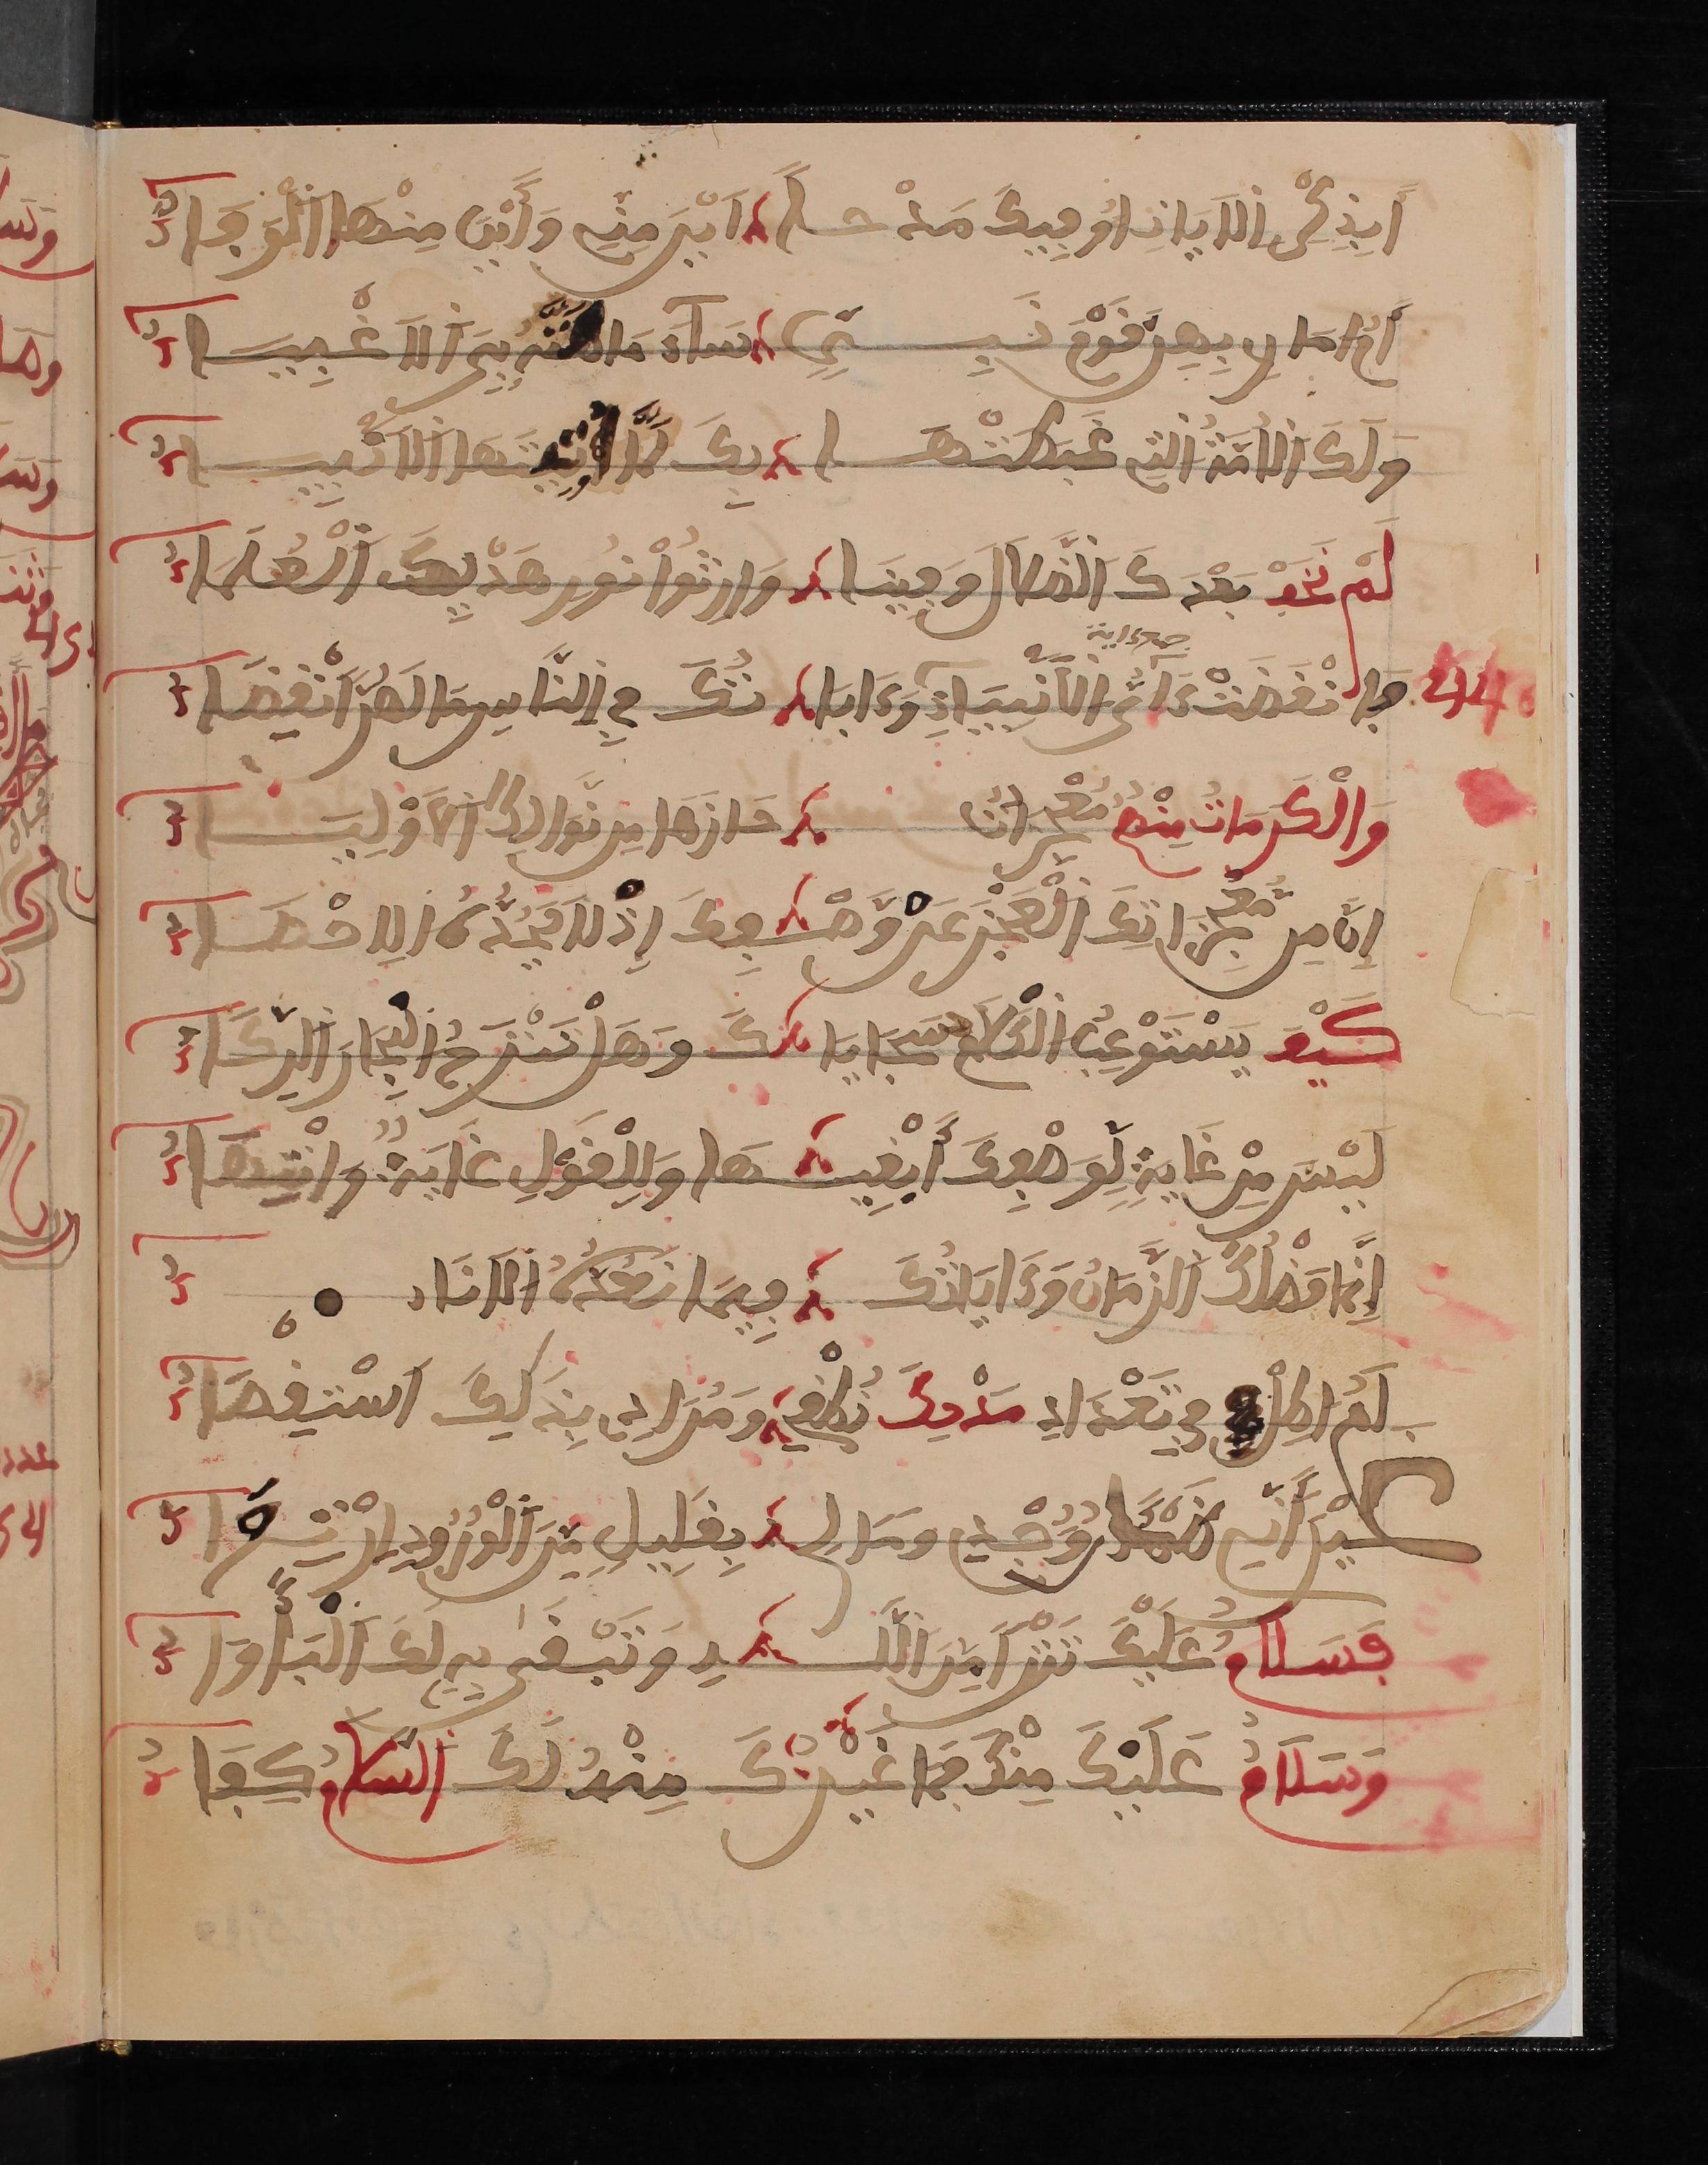 أَبِذِكْرِ الايَاتِ اُوفِيكَ مَدْحــاً أَيْنَ مِنِّي وَأَيْنَ مِنْهَا الْوَفَا
أَمُ امَارِي بِهِنَّ قَوْمَ نَبِــيٍّ سَآءَ مَا ظَنَّهُ بِيَ الَاغْبِيَــا
وَلَكَ الامَّةُ التِي غَبَطَتْهَــا بِكَ لَمَّا أَتَيْتَهَا الَانْبِيَــا
لَمْ نَخَفْ بَعْدَكَ الضَّلَالَ وَفِينَا وَارِثُواْ نُورِ هَدْيِكَ الْعُلَمَا
جمع اية
44 فَانْقَضَتْ ءَايُ الَانْبِيَاءِ وَءَايَا تُكَ فِي النَّاسِ مَا لَهُنَّ انْقِضَا
وَالْكَرَامَاتُ مِنْهُمُ مُعْجِزَاتٌ حَازَهَا مِن نَّوَالِكَ الَاوْلِيَــا
إِنَّ مِن مُّعْجِزَاتِكَ الْعَجْزَ عَن وَّصْــفِكَ إِذْ لَا يَحُدُّهُ الِاحْصَــا
كَيْفَ يَسْتَوْعِبُ الْكَلَامُ سَجَايَا كَ وَهَلْ تَنْزَحُ الْبِحَارَ الرِّكَا
لَيْسَ مِنْ غَايَةٍ لِوَصْفِكَ أَبْغِيــهَا وَلِلْقَوْلِ غَايَةٌ وَانْتِهَا
إِنَّمَا فَضْلُكَ الزَّمَانُ وَءَايَاتُكَ فِيمَا نَعُدُّهُ الَانَاء
لَمُ اطِلْ فِي تَعْدَادِ مَدْحِكَ نُطْقِي وَمُرَادِي بِذَلِكَ اسْتِقْصَا
غَيْرَ أَنِّي ظَمْآنُ وَجْدٍ وَمَا لِي بِقَلِيلٍ مِّنَ الْوُرُودِ ارْتِــوَا
فَسَلَامٌ عَلَيْكَ تَتْرَا مِنَ اللَّــهِ وَتَبْقَى بِهِ لَكَ الْبَأْوَا
وَسَلَامٌ عَلَيْكَ مِنْكَ فَمَا غَيْرُكَ مِنْهُ لَكَ السَّلَامُ كِفَا